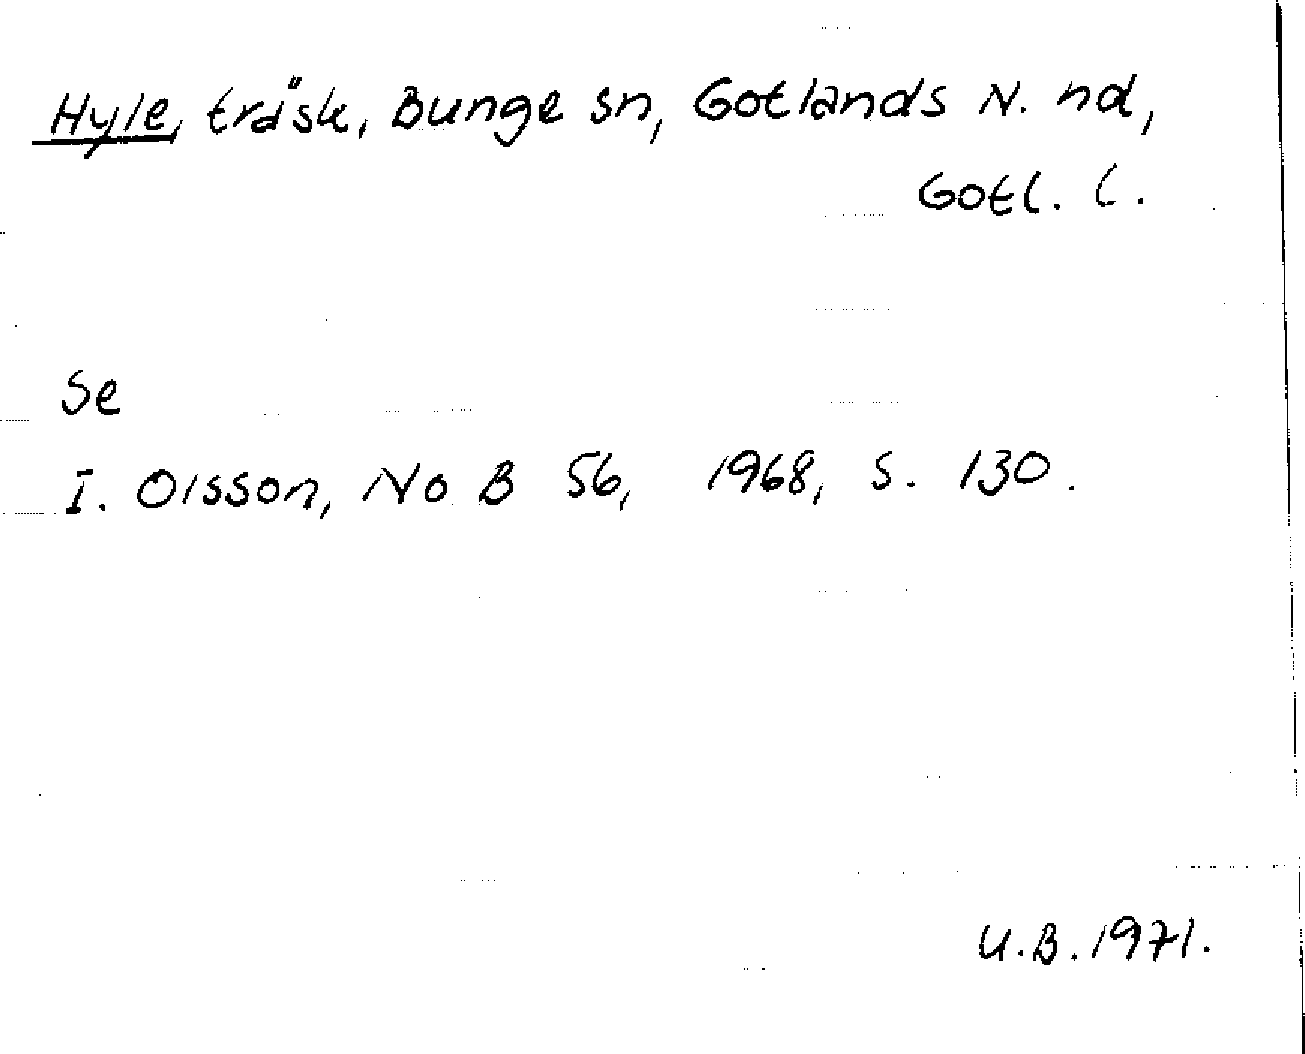 Hyle, träsk, Bunge sn, Gotlands N. hd,
Gotl. l.
Se
I. Olsson, No B 56, 1968, s. 130.
U.B. 1971.